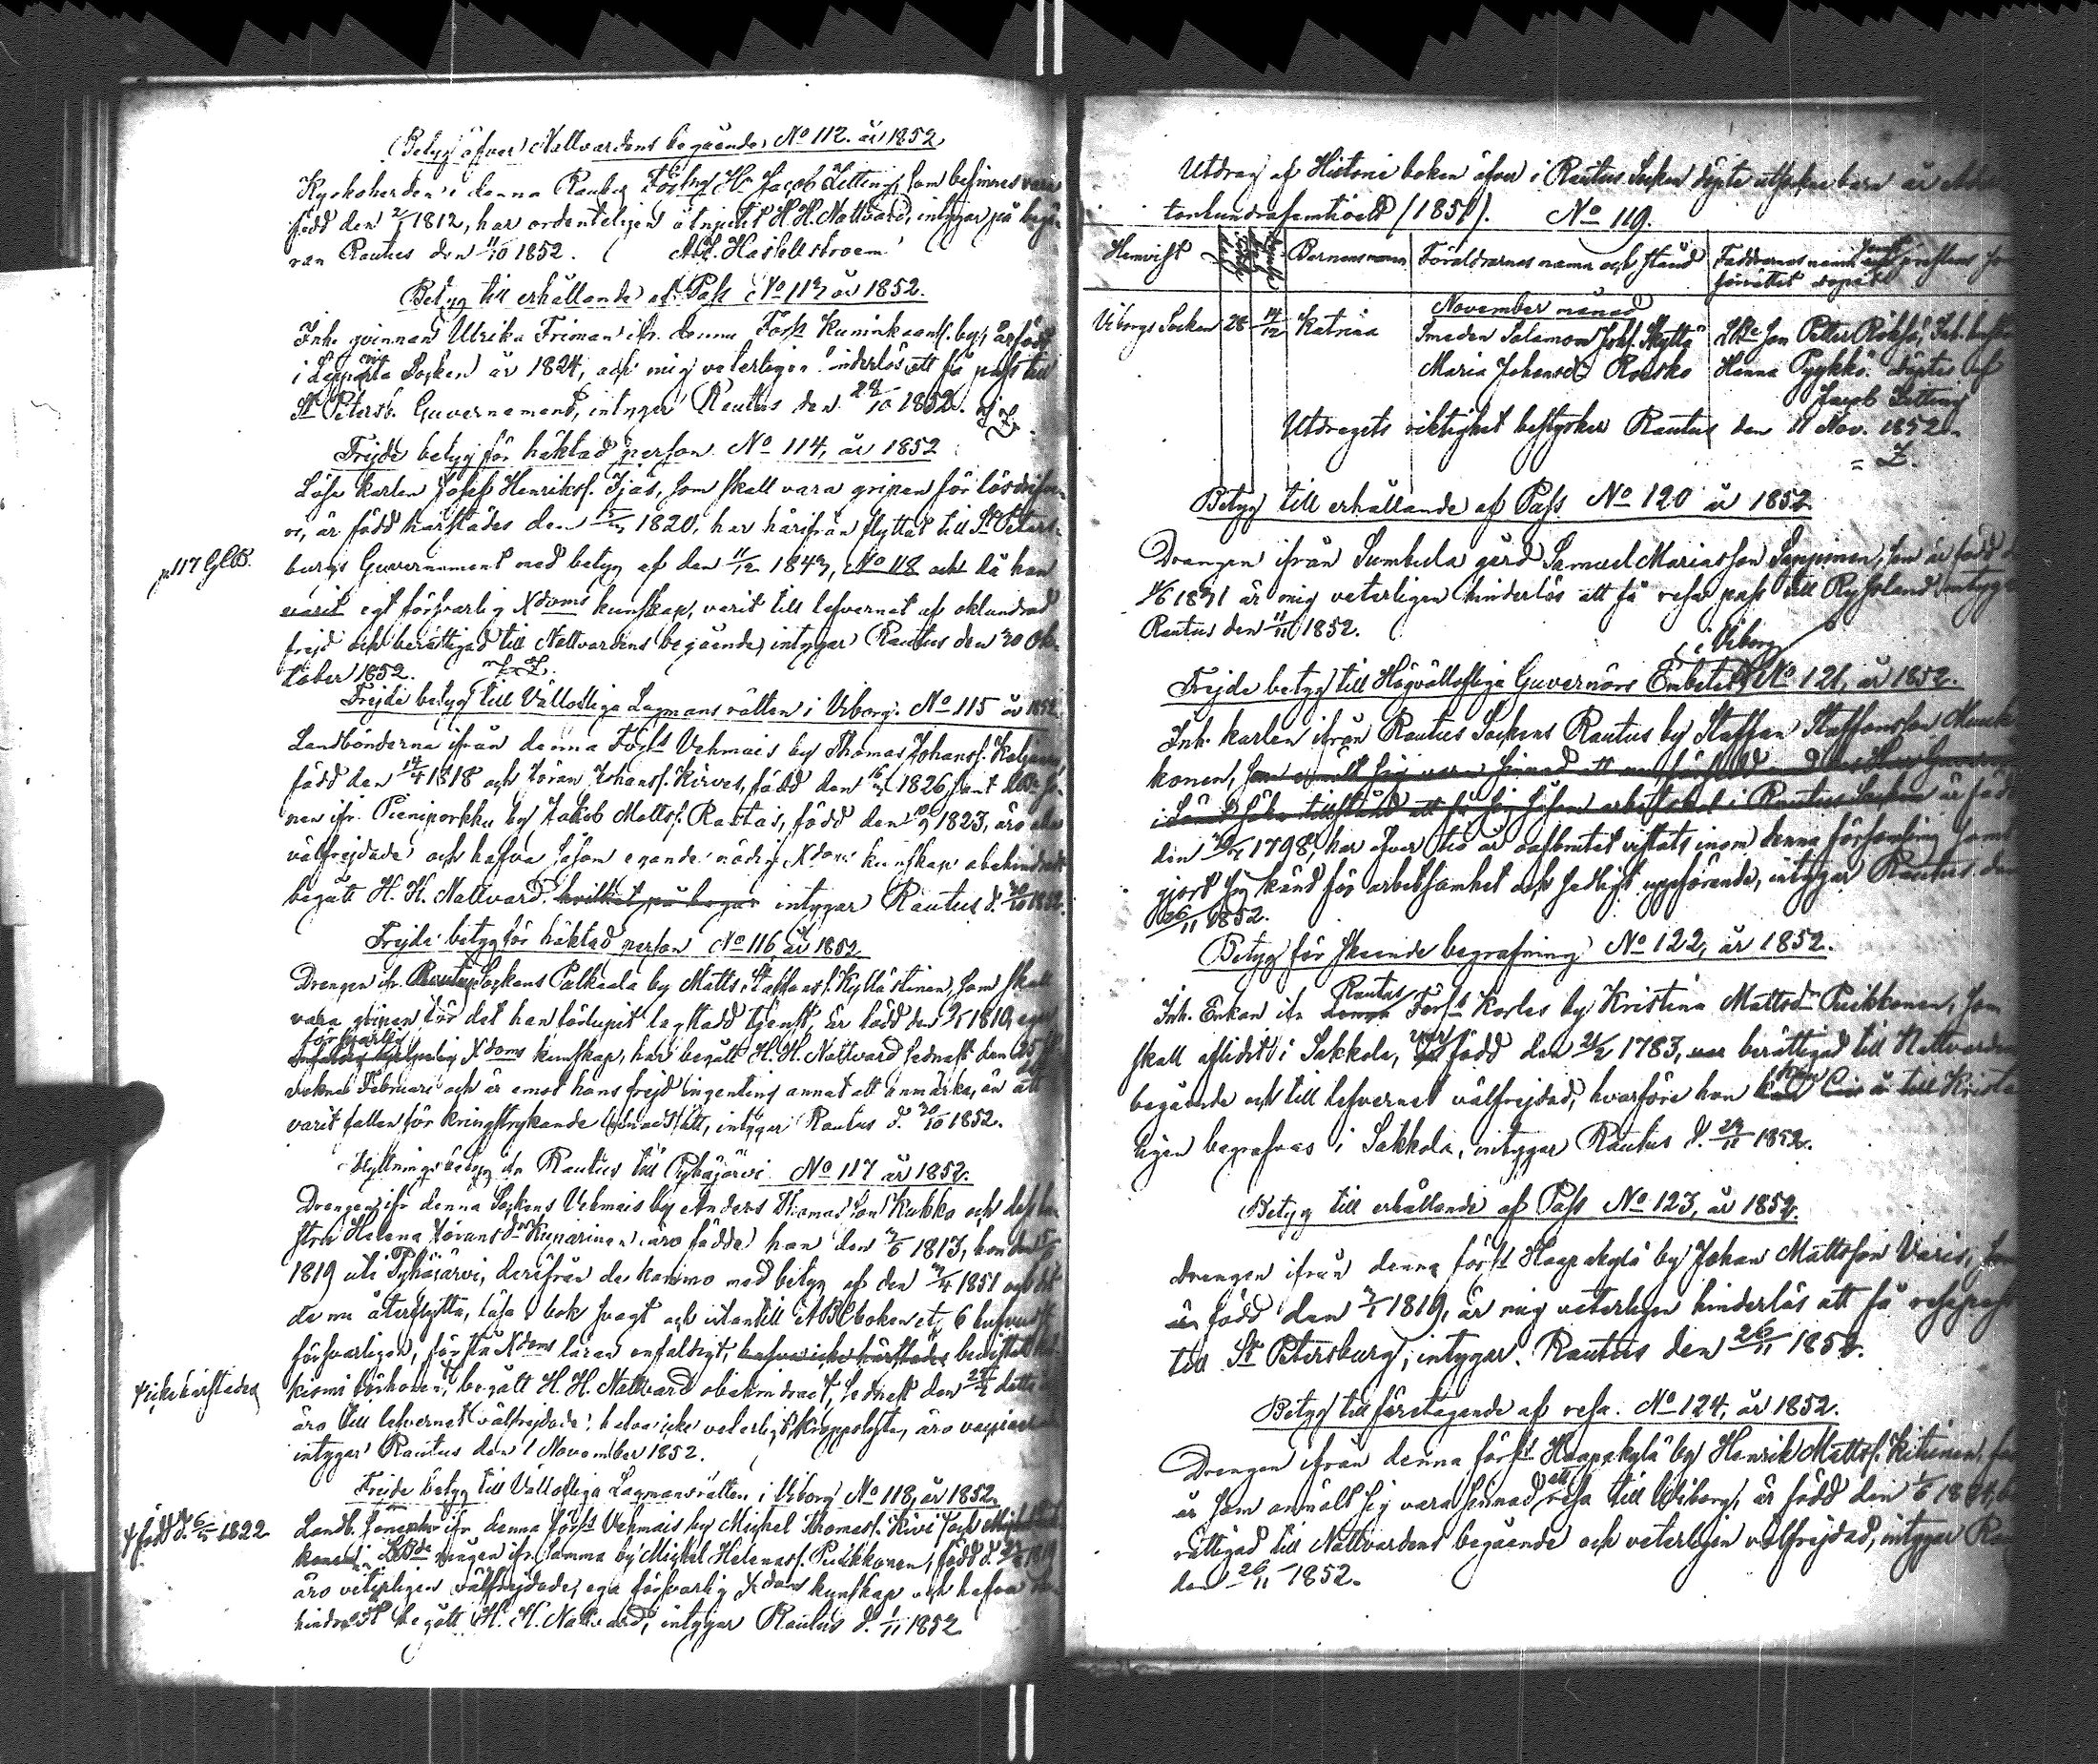 Betyg öfver Nattvardens begående No 112. år 1852
Kyrkoherden i denna Rautus Förs. Hr Jacob Zitting, som befinnes vara
född den 2/1 1812, har ordenteligen åtnjutit H.H. Nattvard, intygar på begä-
ran Rautus den 11/10 1852.
Betyg till erhållande af Pass No 113 år 1852.
Inh. qvinnan Ulrika Friman ifr. denna Förs. Kuninkaans. by, är född
i Socken år 1824, och mig veterligen hinderlös att få pass till
St Petersb. Guvernemend, intygar Rautus den 24/10 1852.
Frejde betyg för häktad person No 114, år 1852
Löse karlen Josef Henrikss. Ijäs, som skall vara gripen för lösdrifve-
ri, är född härstädes den 1820, har härifrån flyttat till St Peters-
burgs Guvernement med betyg af den 11/12 1843, No 118 och då han
varit egt försvarlig Xdoms kunskap, varit till lefvernet af oklandrad
frejd och berättigad till Nattvardens begående, intygar Rautus den 30 Ok-
tober 1852.
Frejde betyg till Vällofliga Lagmans rätten i Viborg. No 115 år 1852
Landbönderna ifrån denna Förs. Vehmais by Thomas Johanss.
född den 14/4 1818 och Göran Johanss. Kirves, född den 1826, samt
nen ifr. Pieniporkku by Jakob Matts. Rastas, född den 1823, äro alla
välfrejdade och hafva såsom egande nödig Xdoms kunskap obehindradt
begått H. H. Nattvard. hvilket på begär intygar Rautus d. 30/10 1852.
Frejde betyg för häktad person No 116, år 1852
Drengen ifr. Rautus Sockens Palkeala by Matts Staffanss. Kyllästinen, som skall
vara gripen för det han förlupit lagstadd tjenst, är född den 1819, eger
försvarlig
Xdoms kunskap, har begått H. H. Nattvard sednast den 25
Februari och är emot hans frejd ingenting annat att anmärka, än att
varit fallen för kringstrykande, intygar Rautus d. 30/10 1852.
Flyttningsbetyg fr. Rautus till Pyhäjärvi No 117 år 1852.
Drengen ifr denna Sockens Vehmais by Anders Thomasson Kukko och dess hu-
stru Helena Göransdr Kuparinen äro födde han den 1813, hon den
1819 uti Pyhäjärvi, derifrån de kommo med betyg af den 1851 och dit
de nu återflytta, läsa i bok svagt och utantill ABCboken et 6 hufvudst.
försvarligen, förstå Xdoms läran enfaldigt, hafva icke härstädes bevistat
kismi förhören, begått H. H. Nattvard obehindradt, sednast den detta
äro till lefvernet välfrejdade, hafva icke veterligt kroppslyte, äro
intygar Rautus den 1 November 1852.
Frejde betyg till Vällofliga Lagmansrätten i Viborg No 118, år 1852
Landb. ifr denna Förs. Vehmais by Michel Thomass. Kivi
ifr. samma by Michel Helenass. Puikkonen, född d. 1819
äro veterligen välfrejdade, ega försvarlig Xdoms kunskap och hafva
hindradt begått H. H. Nattvard, intygar Rautus d. 1/11 1852
p 117 GlB.
icke härstädes
född d. 1822
Utdrag af Historie boken öfver i Rautus Socken döpte utsockne barn år
tonhundrafemtioett (1851). No 119.
Hemvist
Barnens namn
Föräldrarnes namn och stånd
Faddrarnes namn samt presten som
förrättat dopet
November månad
Viborgs Socken 28 14/12 Katrina
Smeden Salomon Johss. Skyttä
Maria Johansdr Rousko
Jon Petter Rökhö,
Hanna Pyykkö. döptes af
Jacob Zitting
Utdragets riktighet bestyrker Rautus den 11 Nov. 1852.
= Z.
Betyg till erhållande af Pass No 120 år 1852
Drengen ifrån Sumbula gård Samuel Mariasson Seppinen, som är född
1831 är mig veterligen hinderlös att få resepass till Ryssland intygar
Rautus den 11/11 1852.
i Viborg
Frejde betyg till Högvällofliga Guvernörs Embetet No 121, år 1852.
Inh. karlen ifrån Rautus Sockens Rautus by Staffan Staffansson Munk-
konen,
är född
den 1798, har öfver tio år oafbrutet vistats inom denna församling samt
gjort sig känd för arbetsamhet och sedligt uppförande, intygar Rautus den
26/11 1852.
Betyg för skeende begrafning No 122, år 1852.
Rautus
Inh. Enkan ifr denna Förs. Korles by Kristina Mattsdr Puikkonen, som
skall aflidit i Sakkola, var född den 1783, var berättigad till Nattvardens
begående och till lefvernet välfrejdad, hvarföre hon kan till Krist-
ligen begrafvas i Sakkola, intygar Rautus d. 29/11 1852.
Betyg till erhållande af Pass No 123, år 1852.
Drengen ifrån denna förs. Haapakylä by Johan Mattsson Varis, som
är född den 1819, är mig veterligen hinderlös att få resepass
till St Petersburg, intygar. Rautus den 26/11 1852.
Betyg till företagande af resa. No 124, år 1852.
Drengen ifrån denna förs. Haapakylä by Henrik Matts. Kitunen,
är som anmält sig vara sinnad att resa till Wiborg, är född den
rättigad till Nattvardens begående och veterligen välfrejdad, intygar
den 26/11 1852.